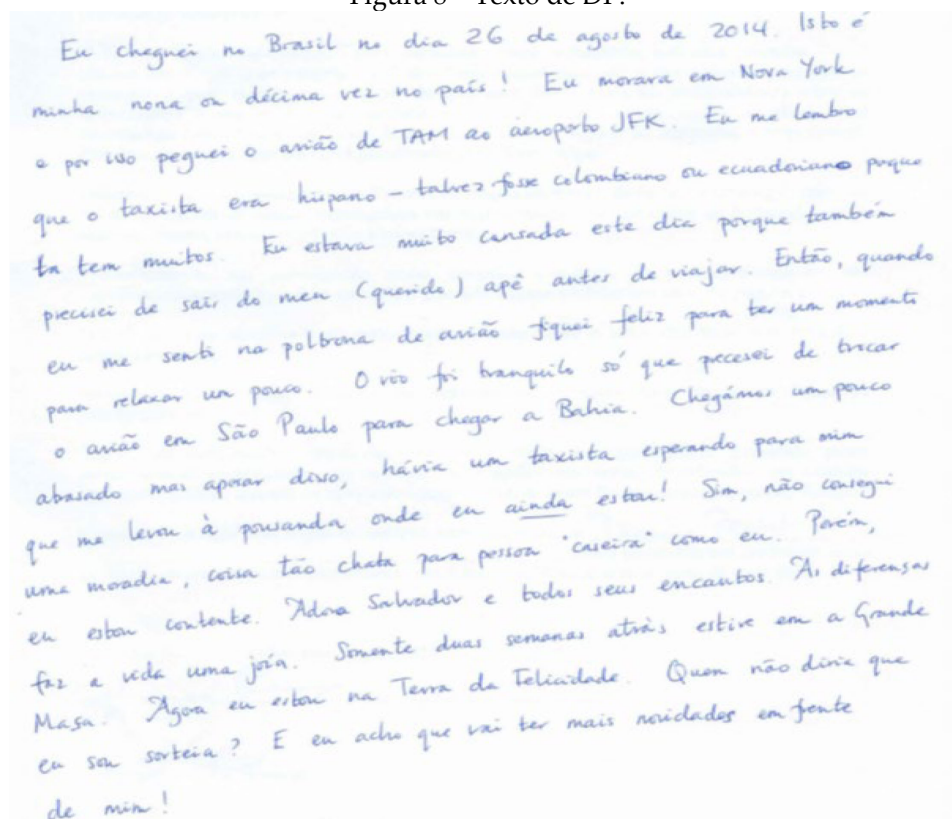 Figura 8 – Texto de DP.
Eu cheguei no Brasil no dia 26 de agosto de 2014. Isto é
minha nona ou décima vez no país! Eu morara em Nova York
e por isso peguei o avião de TAM ao aeroporto JFK. Eu me lembro
que o taxista era hispano – talvez fosse colombiano ou ecuadoriano porque
tem muitos. Eu estava muito cansada este dia porque também
precisei de sair do meu (querido) apê antes de viajar. Então, quando
eu me senti na poltrona de avião fiquei feliz para ter um momento
para relaxar um pouco. O vôo foi tranquilo só que precesei de trocar
o avião em São Paulo para chegar a Bahia. Chegámos um pouco
abrasado mas apesar disso, hávia um taxista esperando para mim
que me levou à pousanda onde eu ainda estou! Sim, não consegui
uma moradia, coisa tão chata para pessoa "caseira" como eu. Porém,
eu estou contente. Adora Salvador e todos seus encantos. As diferenças
faz a vida uma joía. Somente duas semanas atrás estive em a Grande
Maça. Agora eu estou na Terra da Felicidade. Quem não diria que
eu sou sorteia? E eu acho que vai ter mais novidades em frente
de mim!